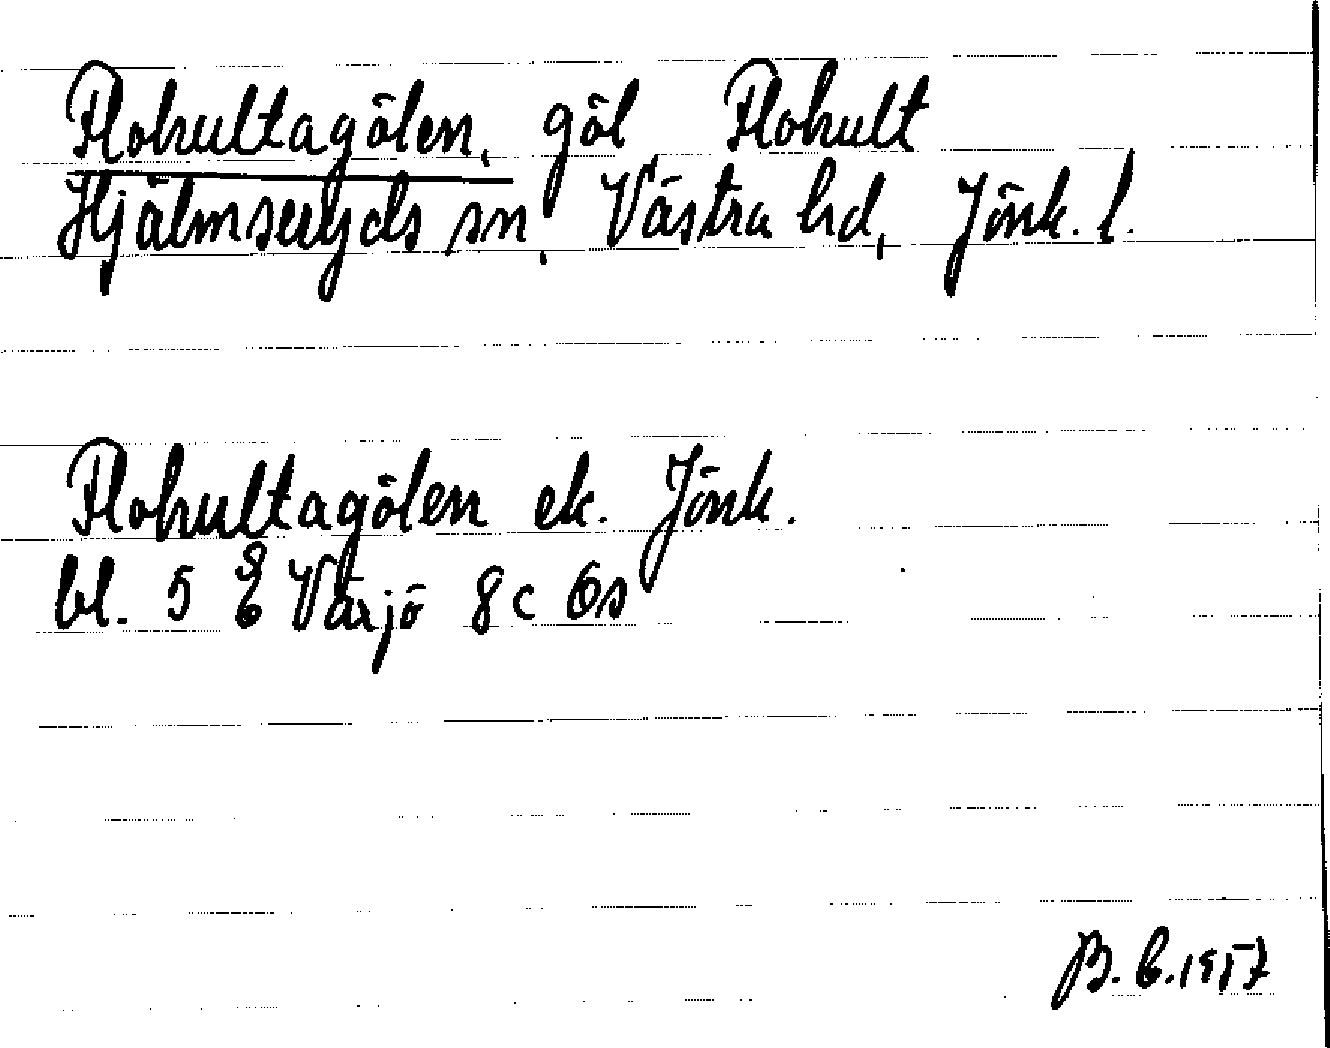 Flohultagölen, göl Flohult
Hjälmseryds sn, Västra hd, Jönk. l.
Flohultagölen ek. Jönk.
bl. 5 E Växjö 8c Os
B. E. 1957